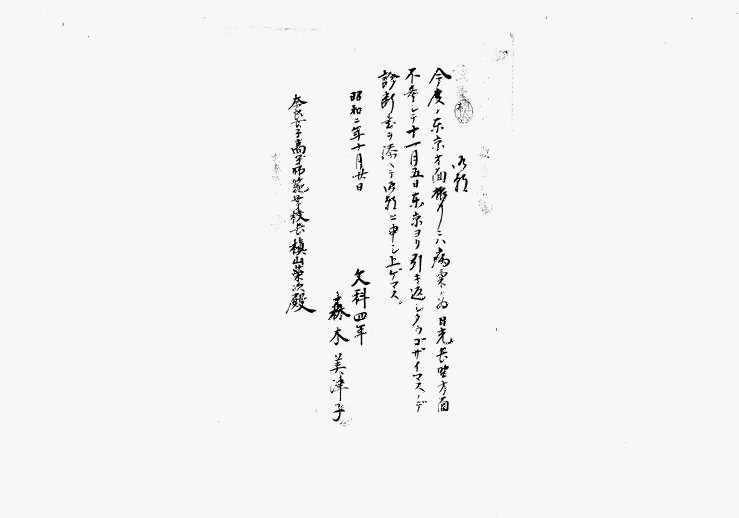 御願
今度ノ東京方面旅行ニハ病気ノ為日光長野方面
不参シテ十一月五日東京ヨリ引キ返シタウゴザイマスノデ
診断書ヲ添ヘテ御願ニ申シ上ゲマス。
昭和二年十月廿日
文科四年
森本美津子
奈良女子高等師範学校長槇山栄次殿